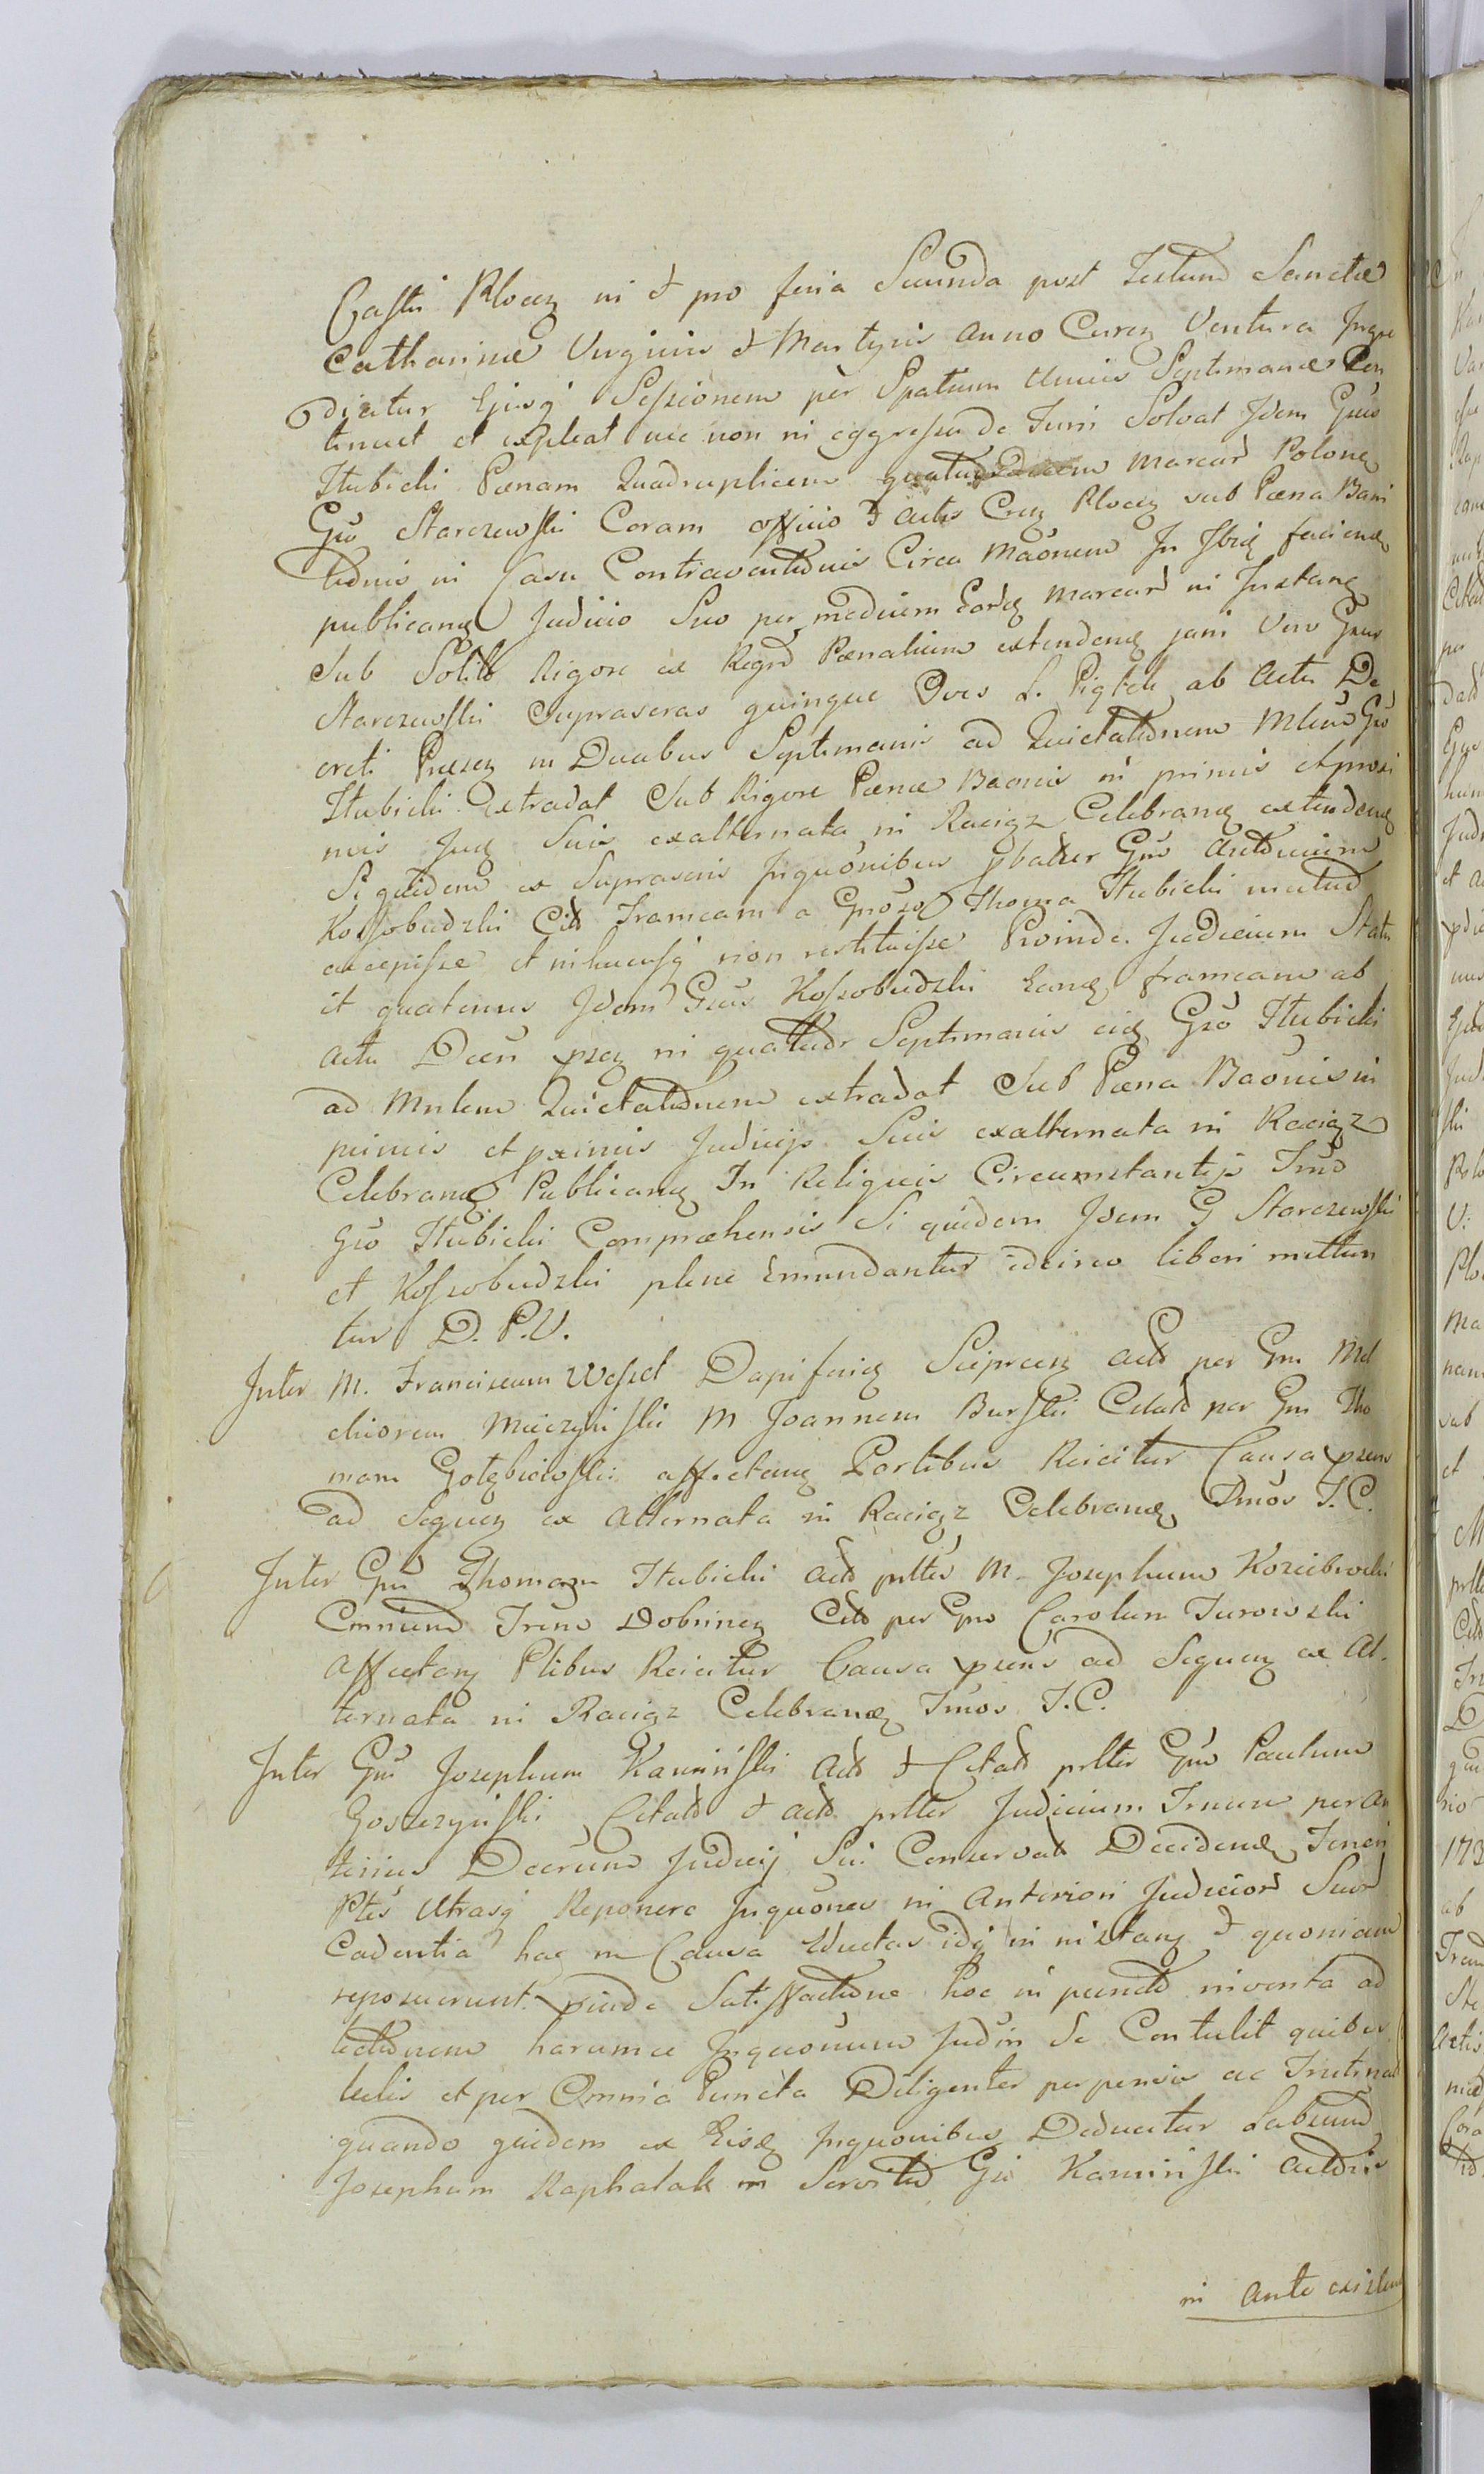 Castri Plocen in et pro feria Secunda post Festum Sanctae
Catharinae Virginis et Martyris Anno Curen Ventura Ingre
diatur Ejusq Sessionem per Spatium Unius Septimanae Con
tinuet et expleat nec non in egressu de Turri Solvat Idem Gnsus
Itubicki Paenam Quadruplicem quatuordecem Marcar Polonq
Gso Starczewski Coram officio et actis Cren Plocen sub Paena Bani
tionis in Casu Contraventionis Circa Maonem In Ibiq faciendq
publicanq Judicio Suo per medium Eordq Marcar in Instanq
Sub Solito Rigore ex Regro Paenalium extendenq jam Vero Gnsus
Starczewski Suprascras quinque Oves L. Piątek ab Actu De
creti Praesen in Duabus Septimanis ad Quietationem Mlem Gso
Itubicki extradat Sub Rigore Paenae Baonis in primis et proxi
mis Jucq Suis exalternata in Raciąz Celebranq extendenq
Si quidem ex Suprascris Inquonibus pbatur Gnum Antonium
Kossobudzki Cit Frameam a Gnoso Thoma Itubicki mutuo
accepisse et in hucusq non restituisse Proinde Judicium Statu
it quatenus Idem Gsus Kossobudzki Eanq frameam ab
Actu Decri psen in quatuor Septimanis eiq Gso Itubicki
ad Mnlem Quietationem extradat Sub Paena Baonis in
primis et pximis Judicijs Suis exalternata in Raciąz
Celebranq Publicanq In Reliquis Circumstantijs Trno
Gso Itubicki Compraehensis Si quidem Idem G Starczewski
et Kossobudzki plene Emundantur idcirco liberi mittun
tur D. P. V.
Inter M. Franciscum Wessel Dapiferiq Sceprcen Act per Gm Mel
chiorem Mieczyński M Joannem Burski Citato per Gm Tho
mam Gołębiowski affectanq Partibus Reicitur Causa psens
ad Sequen ex Alternata in Raciąz Celebranq Tmos T. C.
Inter Gm Thomam Itubicki Act pltter M. Josephum Koziebrocki
Cmnium Trenu Dobrinen Cito per Gm Carolum Turowski
Affectanq Ptibus Reicitur Causa psens ad Sequen ex Al-
ternata in Raciąz Celebranq Tmos T. C.
Inter Gm Josephum Kamiński Act et Citato pltter Gm Paulum
Goszczyński Citato et Act pltter Judicium Trnum per An
terius Decrum Judicij Sui Conservato Decidenq Teneri
Ptes Utrasq Reponere Inquones in Anteriori Judicior Suor
Cadentia hac in Causa Eductas idq in instanq et quoniam
reposuerunt. pinde Satisfactione hoc in puncto inventa ad
lectionem harumce Inquonum Judm Se Contulit quibus
lectis et per Omnia Puncta Diligenter perpensis ac Trutinat
quando quidem ex Eisq Inquonibus Deducitur Labsum
Josephum Raphalak in Servitio Gsi Kamiński Actoris
in Ante existen